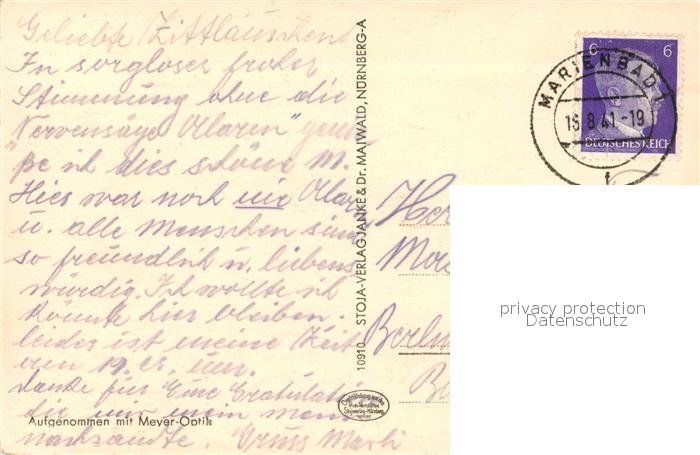 Geliebte Zittläuschen
In sorgloser froher
Stimmung ohne die
Nervensäge „Alarm" genie
ße ich dies schöne M.
Hier war noch nie Alarm
u. alle Menschen sind
so freundlich u. liebens
würdig. Ich wollte ich
könnte hier bleiben.
leider ist meine Zeit
am 19. um.
Danke für Eure Gratulati
die mir mein
nachsandte. Gruss
Aufgenommen mit Meyer-Optik
10910 STOJA-VERLAG JANKE & Dr. MAIWALD, NÜRNBERG-A
6 6
DEUTSCHES REICH
MARIENBAD 1
15.8.41.-19
f
Her
Berlin
privacy protection
Datenschutz